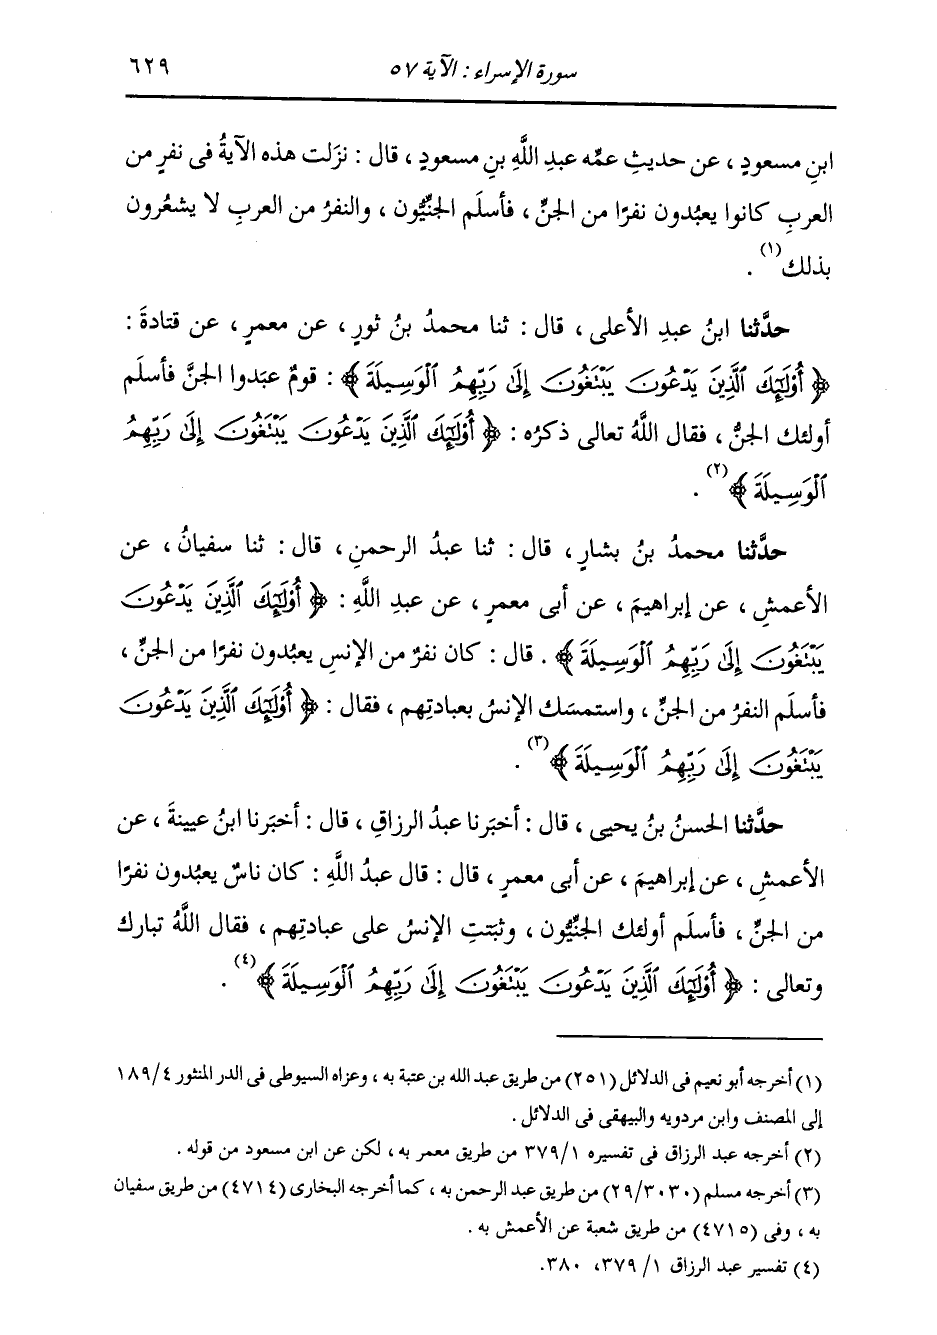 سورة الإسراء : الآية ٥٧ ٦٢٩
ابنِ مسعودٍ ، عن حديثِ عمِّه عبدِ اللَّهِ بنِ مسعودٍ ، قال : نزَلت هذه الآيةُ فى نفرٍ من
العربِ كانوا يعبُدون نفرًا من الجنِّ ، فأسلَم الجنِّيُّون ، والنفرُ من العربِ لا يشعُرون
بذلك(١) .
حدَّثنا ابنُ عبدِ الأعلى ، قال : ثنا محمدُ بنُ ثورٍ ، عن معمرٍ ، عن قتادةَ :
﴿ أُوْلَٰٓئِكَ ٱلَّذِينَ يَدْعُونَ يَبْتَغُونَ إِلَىٰ رَبِّهِمُ ٱلْوَسِيلَةَ ﴾ : قومٌ عبَدوا الجنَّ فأسلَم
أولئك الجنُّ ، فقال اللَّهُ تعالى ذكرُه : ﴿ أُوْلَٰٓئِكَ ٱلَّذِينَ يَدْعُونَ يَبْتَغُونَ إِلَىٰ رَبِّهِمُ
ٱلْوَسِيلَةَ ﴾(٢) .
حدَّثنا محمدُ بنُ بشارٍ ، قال : ثنا عبدُ الرحمنِ ، قال : ثنا سفيانُ ، عن
الأعمشِ ، عن إبراهيمَ ، عن أبى معمرٍ ، عن عبدِ اللَّهِ : ﴿ أُوْلَٰٓئِكَ ٱلَّذِينَ يَدْعُونَ
يَبْتَغُونَ إِلَىٰ رَبِّهِمُ ٱلْوَسِيلَةَ ﴾ . قال : كان نفرٌ من الإنسِ يعبُدون نفرًا من الجنِّ ،
فأسلَم النفرُ من الجنِّ ، واستمسَك الإنسُ بعبادتِهم ، فقال : ﴿ أُوْلَٰٓئِكَ ٱلَّذِينَ يَدْعُونَ
يَبْتَغُونَ إِلَىٰ رَبِّهِمُ ٱلْوَسِيلَةَ ﴾(٣) .
حدَّثنا الحسنُ بنُ يحيى ، قال : أخبَرنا عبدُ الرزاقِ ، قال : أخبَرنا ابنُ عيينةَ ، عن
الأعمشِ ، عن إبراهيمَ ، عن أبى معمرٍ ، قال : قال عبدُ اللَّهِ : كان ناسٌ يعبُدون نفرًا
من الجنِّ ، فأسلَم أولئك الجنِّيُّون ، وثبَتتِ الإنسُ على عبادتِهم ، فقال اللَّهُ تبارك
وتعالى : ﴿ أُوْلَٰٓئِكَ ٱلَّذِينَ يَدْعُونَ يَبْتَغُونَ إِلَىٰ رَبِّهِمُ ٱلْوَسِيلَةَ ﴾(٤) .
(١) أخرجه أبو نعيم فى الدلائل (٢٥١) من طريق عبد الله بن عتبة به ، وعزاه السيوطى فى الدر المنثور ١٨٩/٤
إلى المصنف وابن مردويه والبيهقى فى الدلائل .
(٢) أخرجه عبد الرزاق فى تفسيره ٣٧٩/١ من طريق معمر به ، لكن عن ابن مسعود من قوله .
(٣) أخرجه مسلم (٢٩/٣٠٣٠) من طريق عبد الرحمن به ، كما أخرجه البخارى (٤٧١٤) من طريق سفيان
به ، وفى (٤٧١٥) من طريق شعبة عن الأعمش به .
(٤) تفسير عبد الرزاق ١/ ٣٧٩، ٣٨٠.